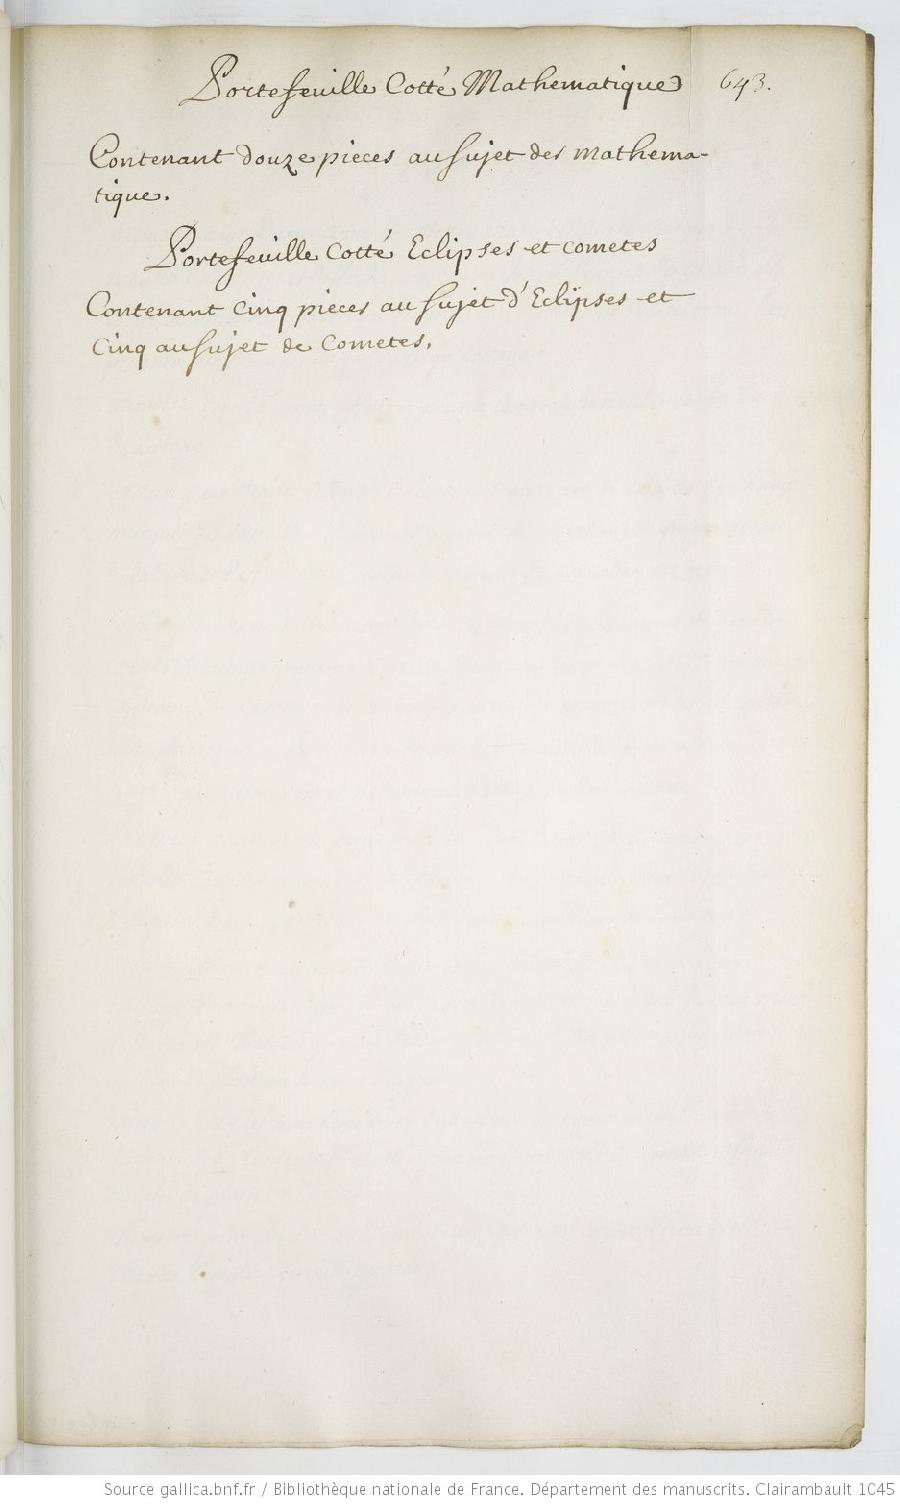 Portefeuille Cotté Mathematique 643.
Contenant douze pieces au sujet des mathema-
tique.
Portefeuille Cotté Eclipses et cometes
Contenant Cinq pieces au sujet d'Eclipses et
Cinq au sujet de Cometes.
Source gallica.bnf.fr / Bibliothèque nationale de France. Département des manuscrits. Clairambault 1045